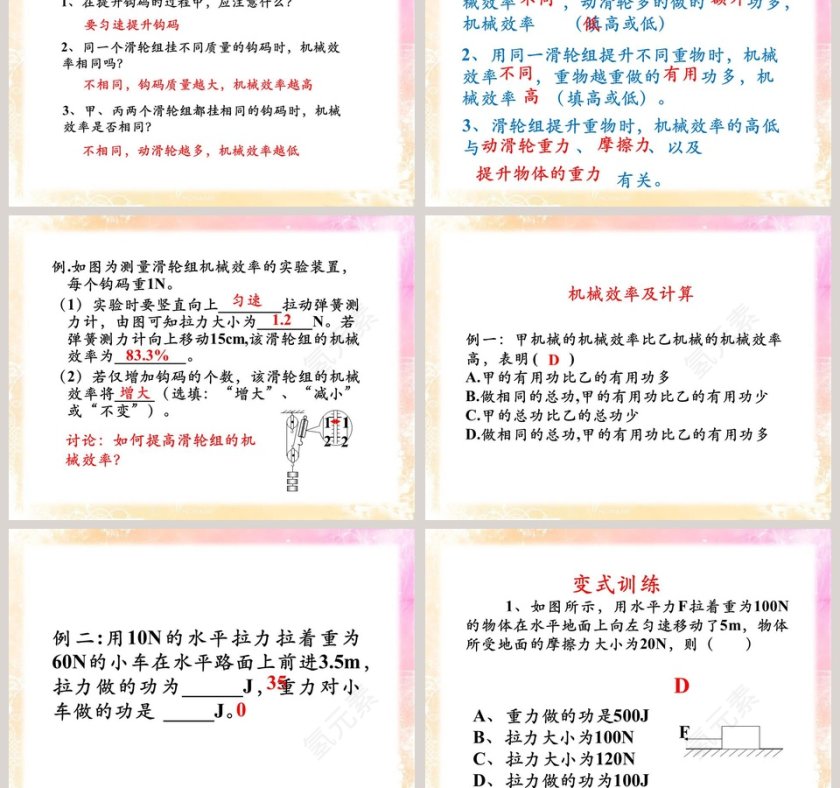 1、在提升钩码的过程中，应注意什么？
要匀速提升钩码
2、同一个滑轮组挂不同质量的钩码时，机械效
率相同吗？
不相同，钩码质量越大，机械效率越高
3、甲、丙两个滑轮组都挂相同的钩码时，机械
效率是否相同？
不相同，动滑轮越多，机械效率越低
械效率不同，动滑轮多的做的额外功多，
机械效率 低（填高或低）
2、用同一滑轮组提升不同重物时，机械
效率不同，重物越重做的有用功多，机
械效率 高（填高或低）。
3、滑轮组提升重物时，机械效率的高低
与动滑轮重力、摩擦力、以及
提升物体的重力 有关。
例.如图为测量滑轮组机械效率的实验装置，
每个钩码重1N。
（1）实验时要竖直向上 匀速 拉动弹簧测
力计，由图可知拉力大小为 1.2 N。若
弹簧测力计向上移动15cm,该滑轮组的机械
效率为 83.3% 。
（2）若仅增加钩码的个数，该滑轮组的机械
效率将 增大（选填：“增大”、“减小”
或“不变”）。
讨论：如何提高滑轮组的机
械效率？
1 1
2 2
机械效率及计算
例一：甲机械的机械效率比乙机械的机械效率
高，表明( D )
A.甲的有用功比乙的有用功多
B.做相同的总功,甲的有用功比乙的有用功少
C.甲的总功比乙的总功少
D.做相同的总功,甲的有用功比乙的有用功多
例二:用10N的水平拉力拉着重为
60N的小车在水平路面上前进3.5m，
拉力做的功为______J，35重力对小
车做的功是 _____J。0
变式训练
1、如图所示，用水平力F拉着重为100N
的物体在水平地面上向左匀速移动了5m，物体
所受地面的摩擦力大小为20N，则（ ）
D
A、重力做的功是500J
B、拉力大小为100N
C、拉力大小为120N
D、拉力做的功为100J
F
氢元素
氢元素
氢元素
氢元素